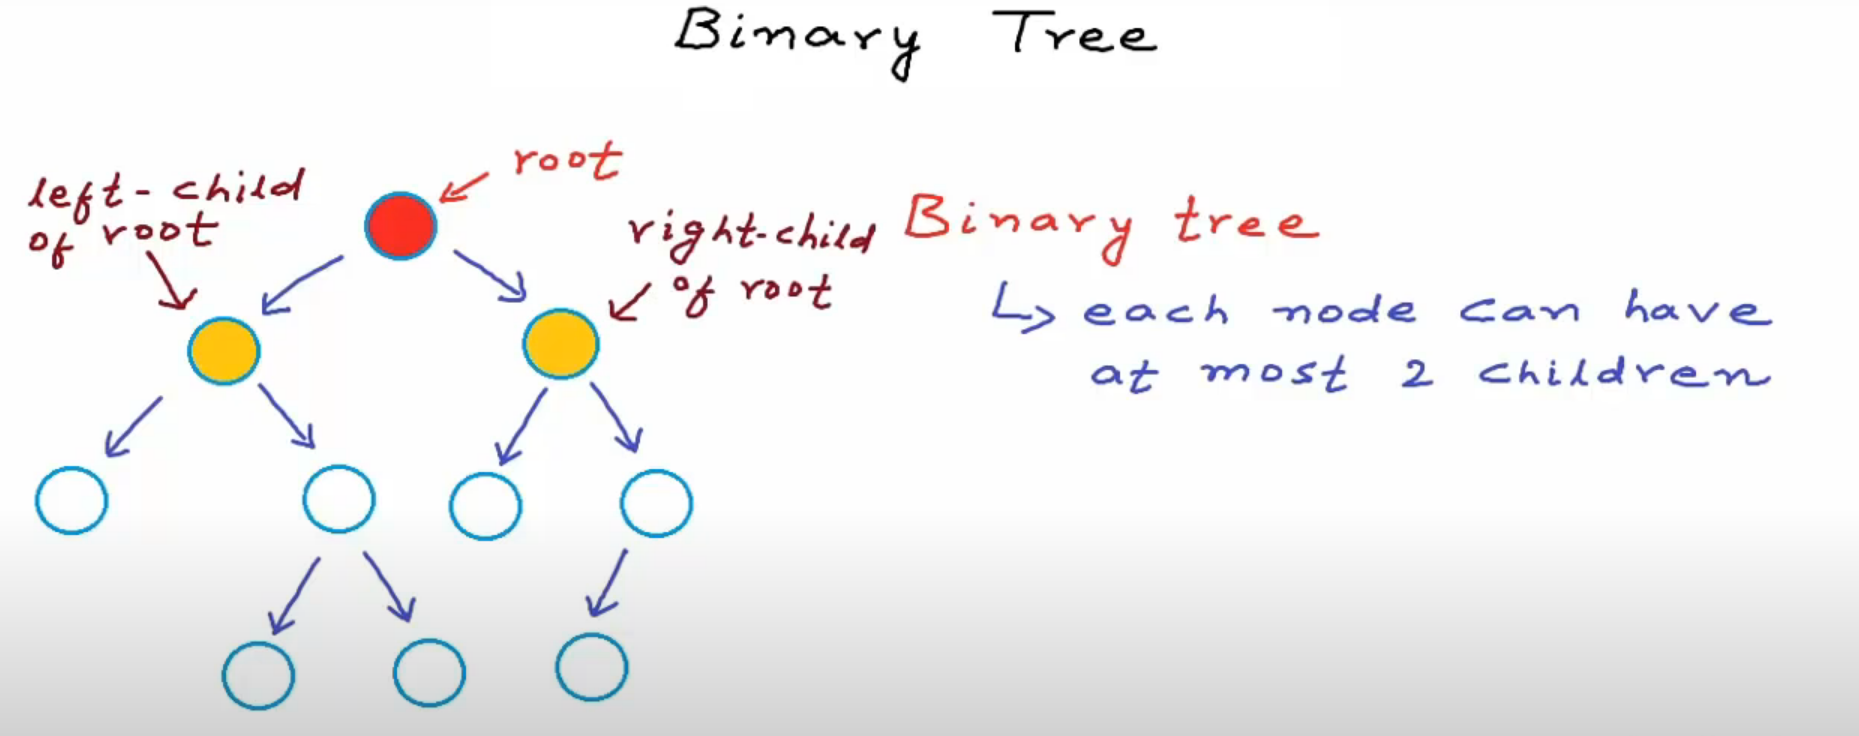 Binary Tree
root
left-child
of root
right-child
of root
Binary tree
↳ each node can have
at most 2 children